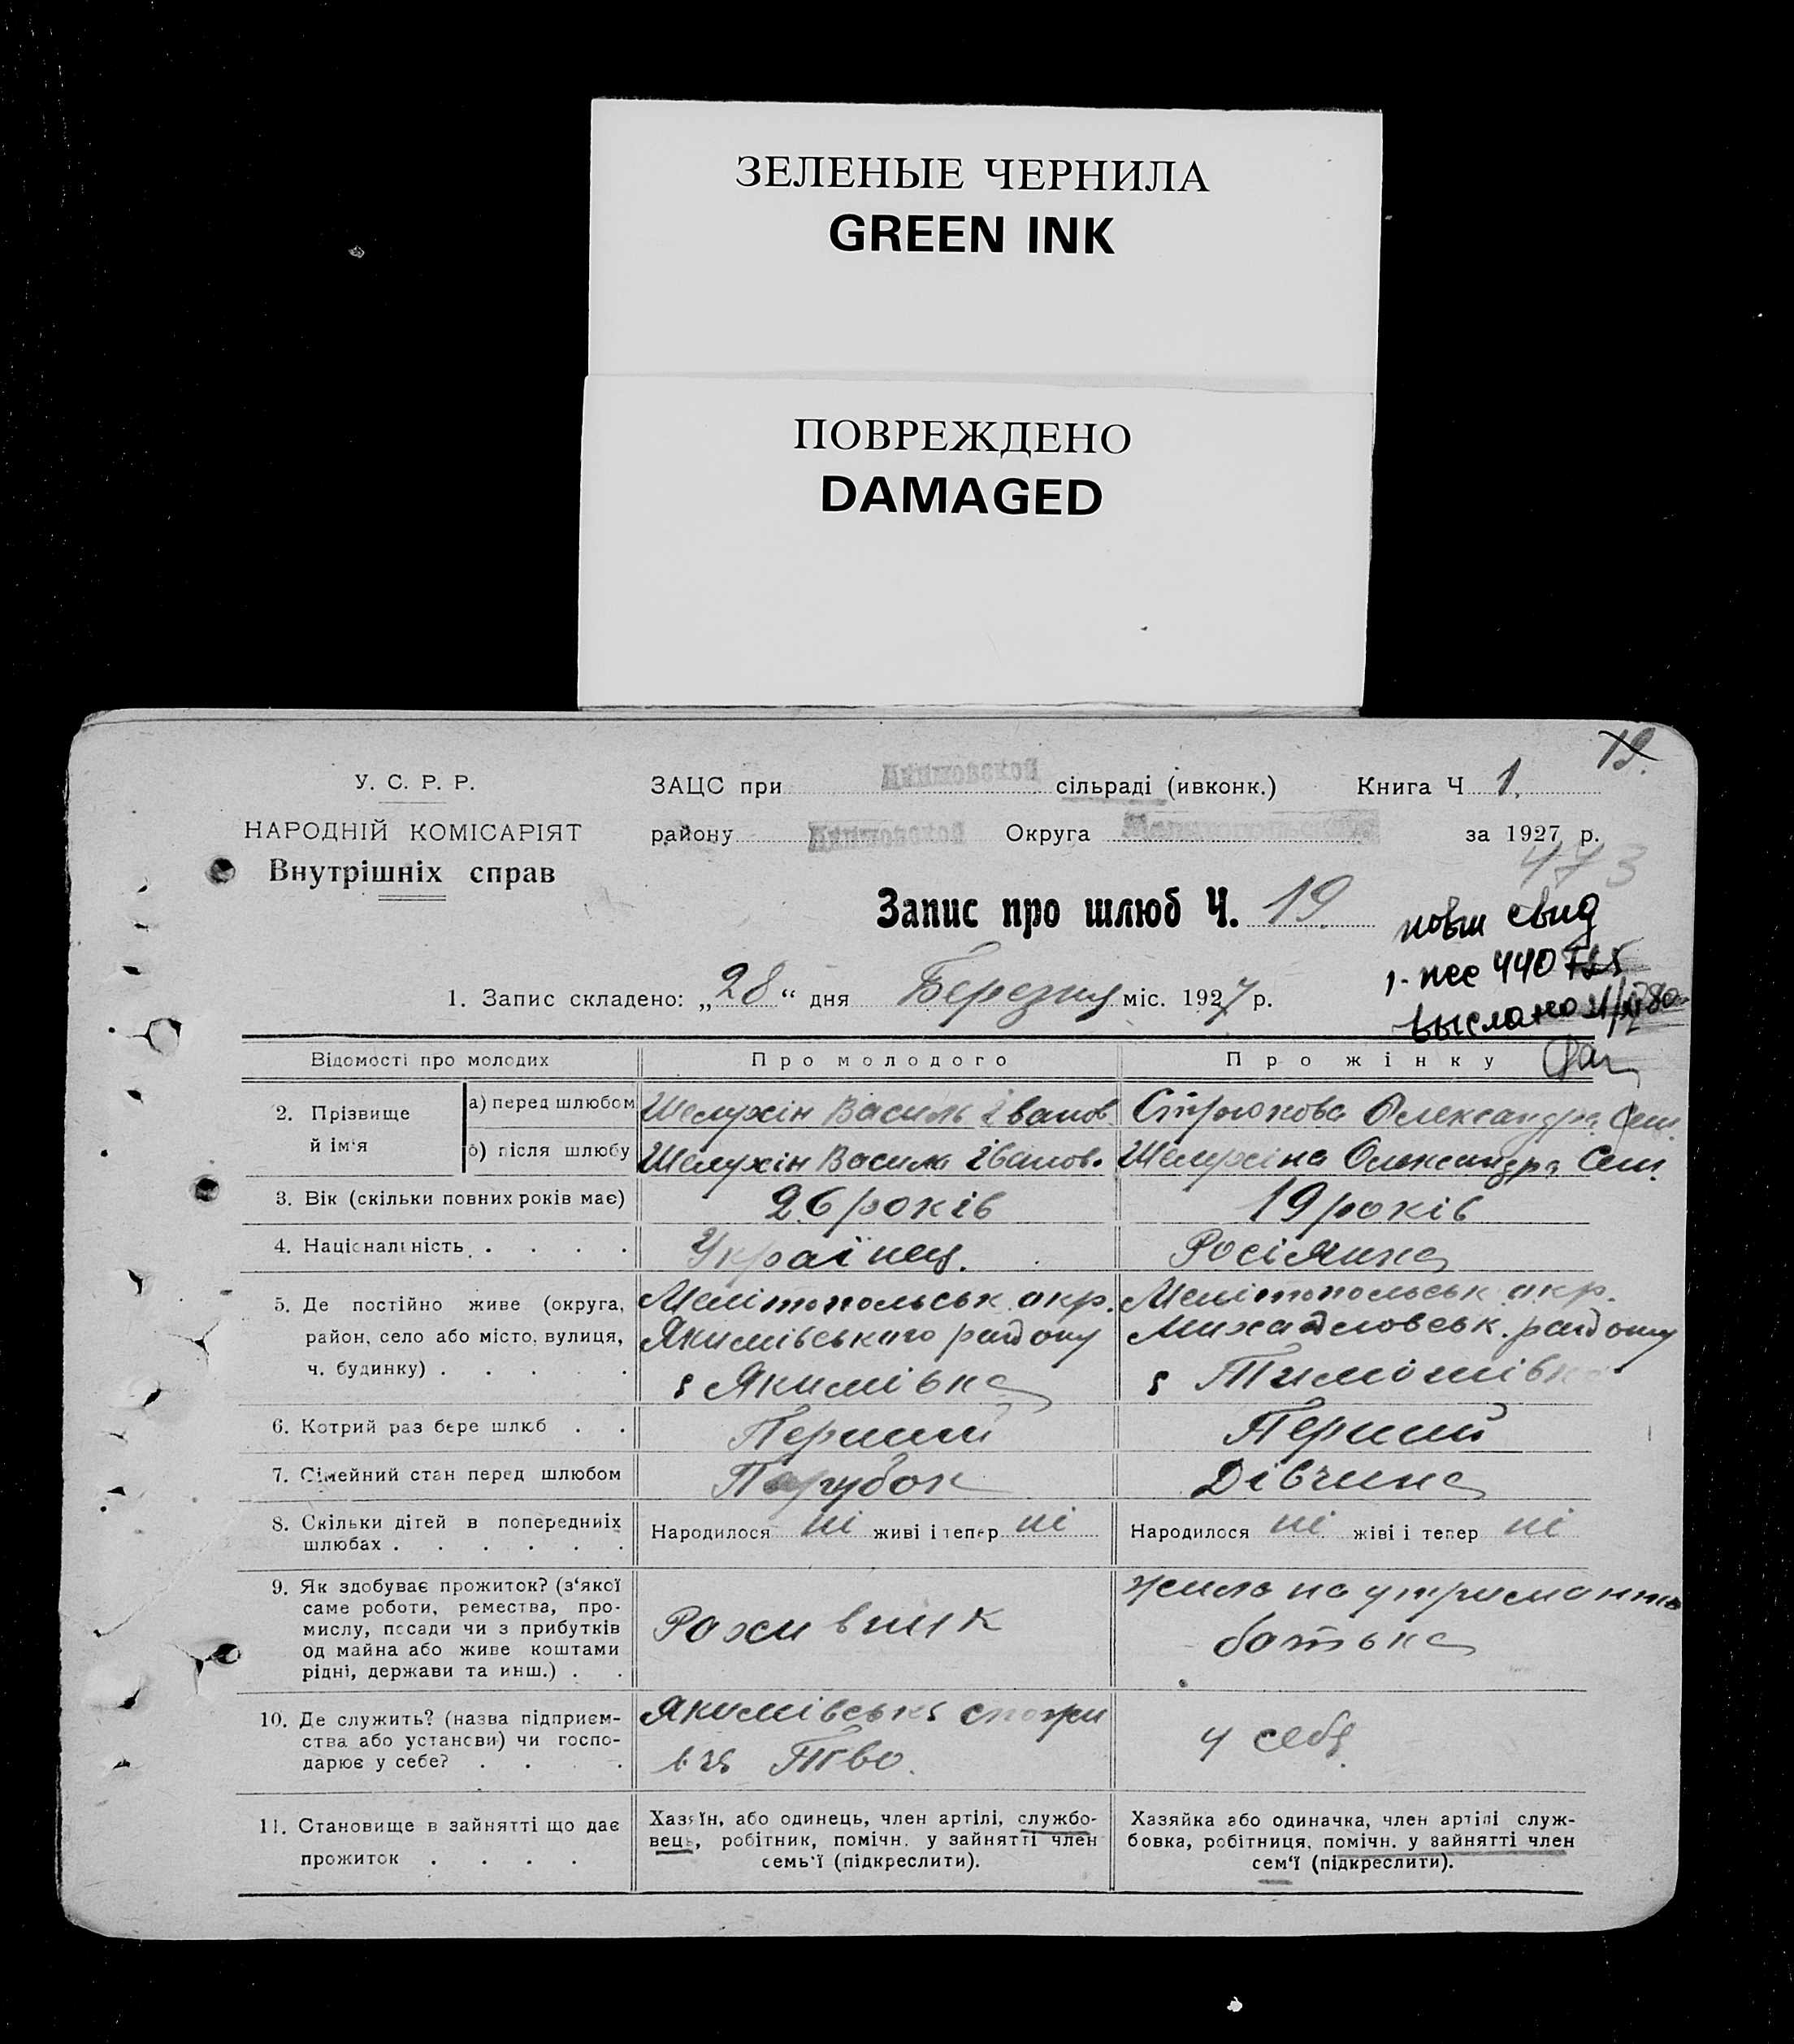 ЗЕЛЕНЫЕ ЧЕРНИЛА
GREEN INK
ПОВРЕЖДЕНО
DAMAGED
19.
У. С. Р. Р.
НАРОДНІЙ КОМІСАРІЯТ
Внутрішніх справ
ЗАЦС при Акимовской сільраді (ивконк.) Книга Ч 1.
району Акимовской Округа за 1927 р.
473
Запис про шлюб Ч. 19.
1. Запис складено: „28“ дня Березня міс. 1927 р.
свид
440
выслано
Відомості про молодих
Про молодого
Про жінку
2. Прізвище й ім'я
а) перед шлюбом
Шелухін Василь Іванов.
Стрюкова Олександра Сем.
б) після шлюбу
Шелухін Василь Іванов.
Шелухіна Олександра Сем.
3. Вік (скільки повних років має)
26 років
19 років
4. Національність . . . .
Українець.
Росіянка
5. Де постійно живе (округа,
район, село або місто, вулиця,
ч. будинку) . . . . .
Мелітопольськ. окр.
Якимівського району
с Якимівка
Мелітопольськ. окр.
Михайловськ. району
с Тимошівка
6. Котрий раз бере шлюб . .
Перший
Перший
7. Сімейний стан перед шлюбом
Парубок
Дівчина
8. Скільки дітей в попередниіх
шлюбах . . . . . .
Народилося ні живі і тепер ні
Народилося ні жіві і тепер ні
9. Як здобуває прожиток? (з'якої
саме роботи, ремества, про-
мислу, посади чи з прибутків
од майна або живе коштами
рідні, держави та инш.) . .
жила на утриманню
батька
10. Де служить? (назва підприєм-
ства або установи) чи госпо-
дарює у себе? . . . .
Якимівське спожи
вче Т-во.
у себе
11. Становище в зайнятті що дає
прожиток . . . .
Хазяїн, або одинець, член артілі, службо-
вець, робітник, помічн. у зайнятті член
семь'ї (підкреслити).
Хазяйка або одиначка, член артілі служ-
бовка, робітниця, помічн. у зайнятті член
сем'ї (підкреслити).